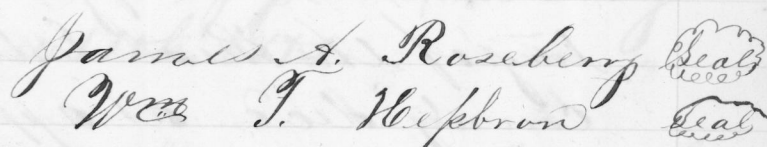 James A. Roseberry Seal
Wm T. Hepbron Seal